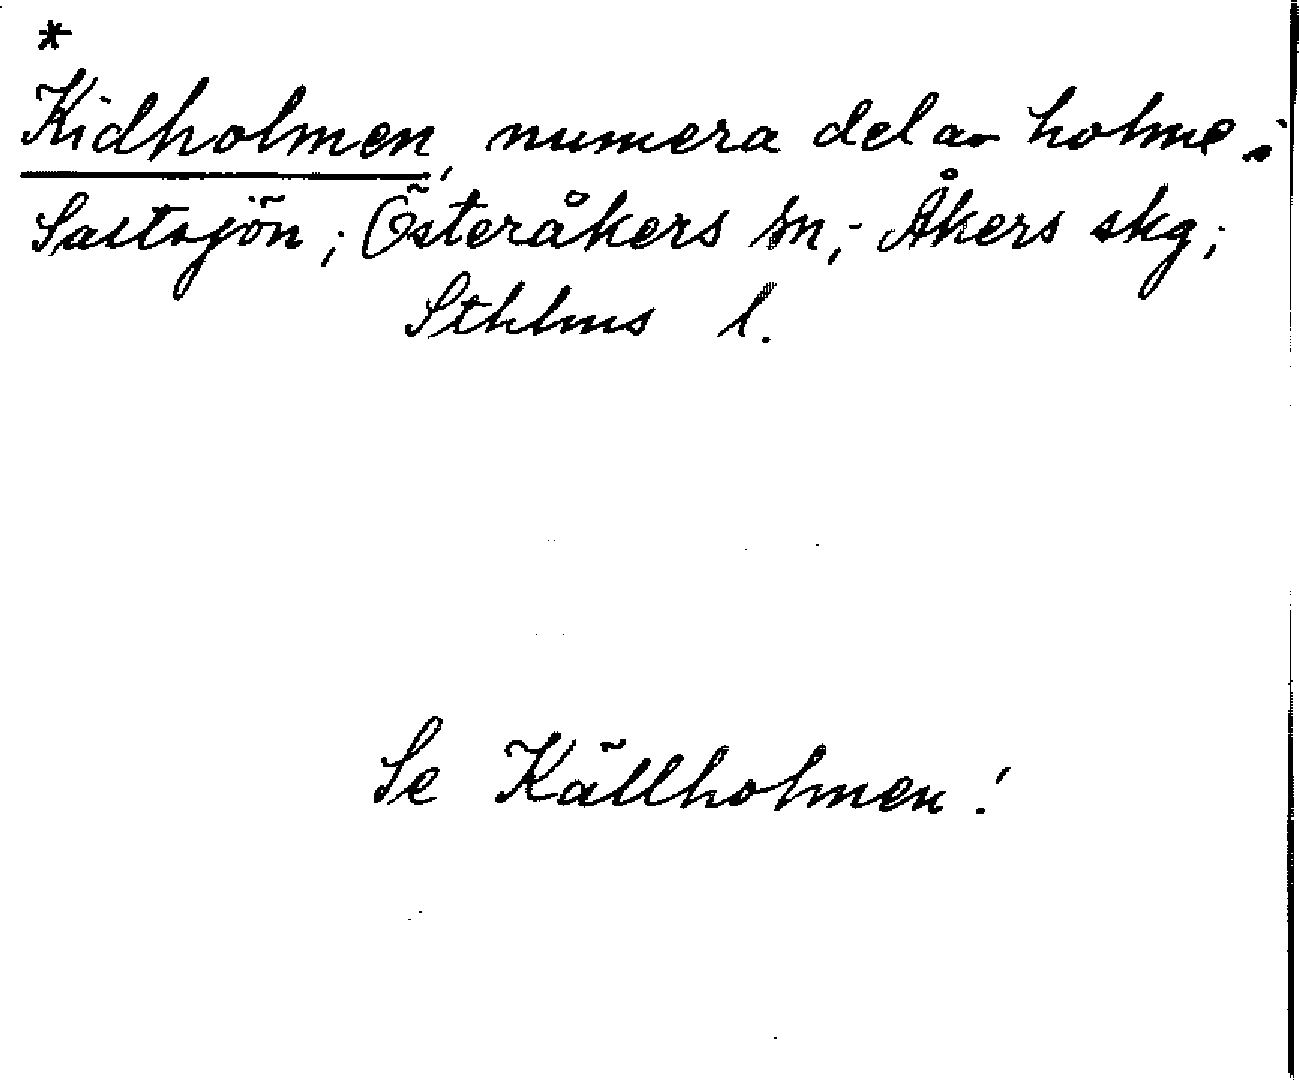 *
Kidholmen, numera del av holme i
Saltsjön; Österåkers sn; Åkers skg;
Sthlms l.
Se Källholmen!